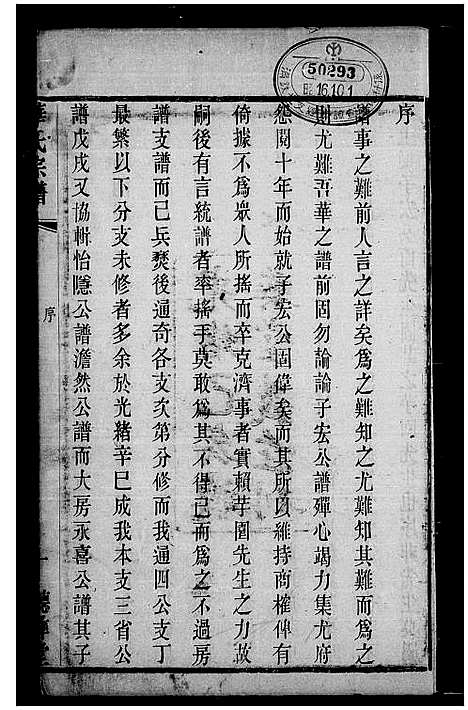 序
譜事之難前人言之詳矣爲之難知之尤難知其難而爲之
則尤難吾華之譜前固勿論論子宏公譜殫心竭力集尤府
怨閱十年而始就子宏公固偉矣而其所以維持商榷俾有
倚據不爲眾人所搖而卒克濟事者實賴芋園先生之力故
嗣後有言統譜者率搖手莫敢爲其不得已而爲之不過房
譜支譜而已兵燹後通奇各支次第分修而我通四公支丁
最繁以下分支未修者多余於光緒辛巳成我本支三省公
譜戊戌又協輯怡隱公譜澹然公譜而大房永喜公譜其子
華氏宗譜
序
一
50293
昭 16.10.1